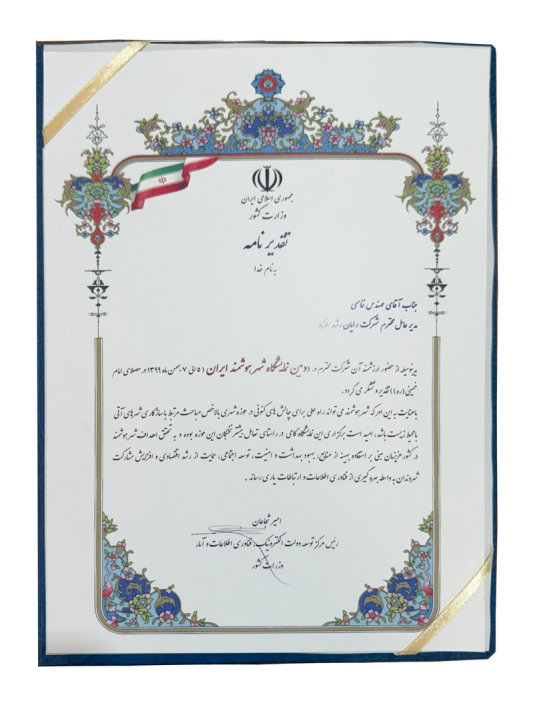 جمهوری اسلامی ایران
وزارت کشور
تقدیر نامه
به نام خدا
جناب آقای مهندس قاسمی
مدیر عامل محترم شرکت رایان رشد افزار
بدینوسیله از حضور ارزشمند آن شرکت محترم در دومین نمایشگاه شهر هوشمند ایران (۵ الی ۷ بهمن ماه ۱۳۹۹ در مصلای امام
خمینی (ره)) تقدیر و تشکر می گردد.
با عنایت به این امر که شهر هوشمند می تواند راه حلی برای چالش های کنونی در حوزه شهری بالاخص مباحث مرتبط با سازگاری شهرهای آتی
با محیط زیست باشد، امید است برگزاری این نمایشگاه گامی در راستای تعامل بیشتر نخبگان این حوزه بوده و به تحقق اهداف شهر هوشمند
در کشور عزیزمان مبنی بر استفاده بهینه از منابع، بهبود بهداشت و امنیت، توسعه اجتماعی، حمایت از رشد اقتصادی و افزایش مشارکت
شهروندان به واسطه بهره گیری از فناوری اطلاعات و ارتباطات یاری رساند.
امیر شجاعان
رئیس مرکز توسعه دولت الکترونیک، فناوری اطلاعات و آمار
وزارت کشور